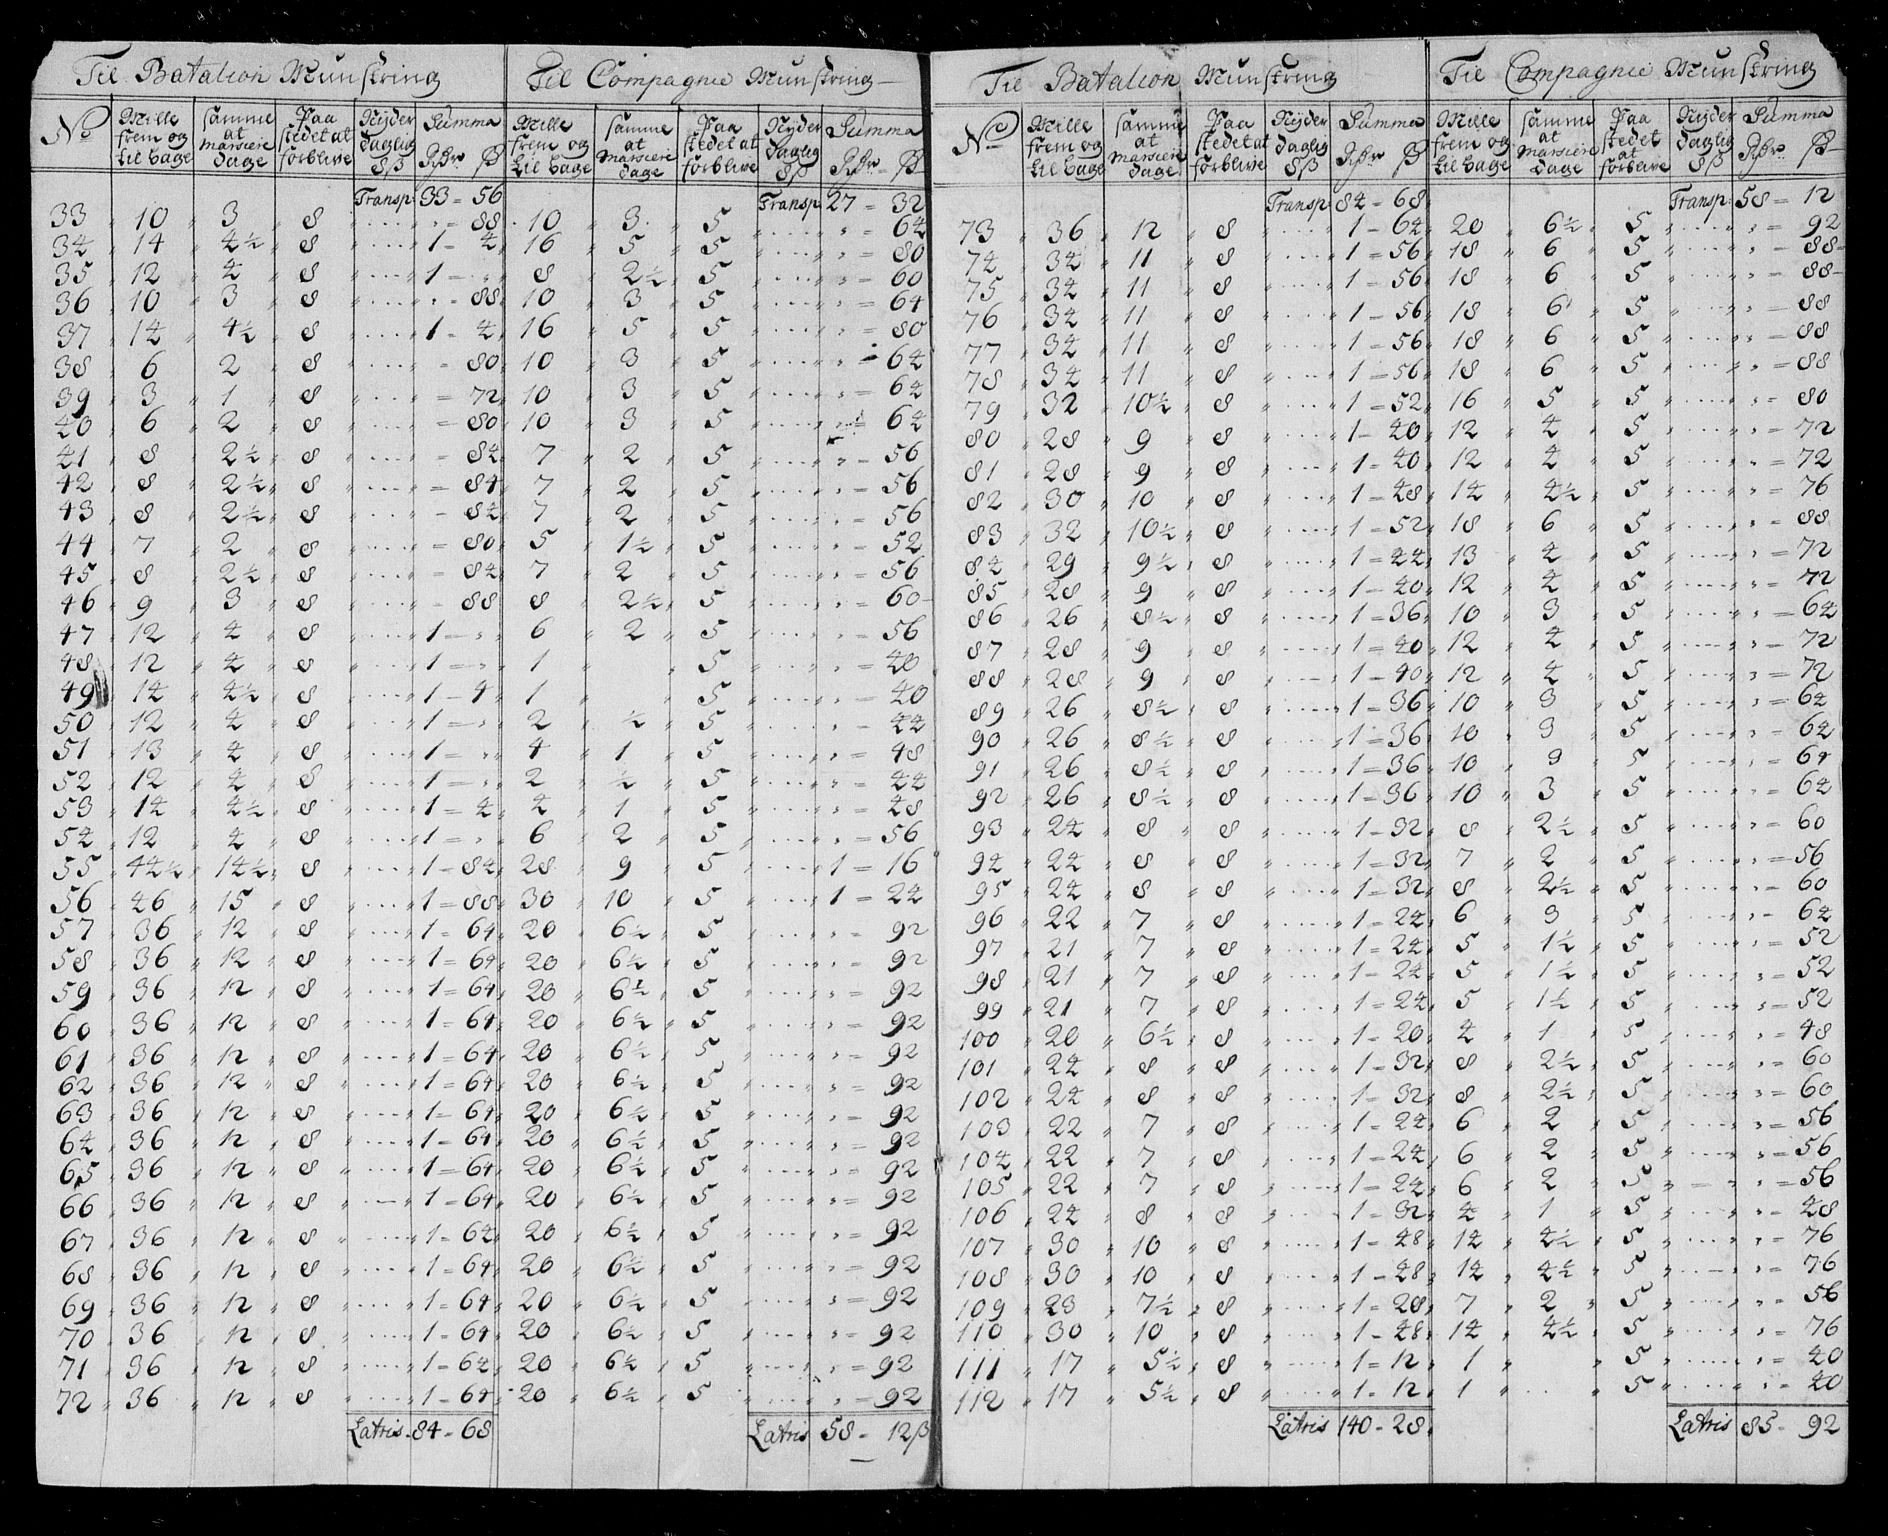 Til Batalion Munstring Til Compagnie Munstring
No Mille frem og til bage Samme at Marsiere dage Paa stedet at forblive Nyder daglig 8 ß Summa Rdr ß Mille frem og til bage Samme at Marsiere dage Paa stedet at forblive Nyder daglig 8 ß Summa Rdr ß
Transp 33 = 56 Transp 27 = 32
33 10 3 8 " = 88 10 3 5 " = 64
34 14 4½ 8 1 - 4 16 5 5 " = 80
35 12 4 8 1 - " 8 2½ 5 " = 60
36 10 3 8 " - 88 10 3 5 " = 64
37 14 4½ 8 1 - 4 16 5 5 " = 80
38 6 2 8 - 80 10 3 5 " = 64
39 3 1 8 = 72 10 3 5 " = 64
40 6 2 8 = 80 10 3 5 " = 64
41 8 2½ 8 - 84 7 2 5 " = 56
42 8 2½ 8 = 84 7 2 5 " = 56
43 8 2½ 8 - 84 7 2 5 " = 56
44 7 2 8 - 80 5 1½ 5 " = 52
45 8 2½ 8 - 84 7 2 5 " = 56
46 9 3 8 - 88 8 2½ 5 " = 60
47 12 4 8 1 - " 6 2 5 " = 56
48 12 4 8 1 - " 1 5 " = 40
49 14 4½ 8 1 - 4 1 5 " = 40
50 12 4 8 1 - " 2 ½ 5 " = 44
51 13 4 8 1 = " 4 1 5 " = 48
52 12 4 8 1 - " 2 ½ 5 " = 44
53 14 4½ 8 1 = 4 4 1 5 " = 48
54 12 4 8 1 = " 6 2 5 " = 56
55 44½ 14½ 8 1 - 84 28 9 5 1 - 16
56 46 15 8 1 - 88 30 10 5 1 = 24
57 36 12 8 1 - 64 20 6½ 5 " - 92
58 36 12 8 1 - 64 20 6½ 5 " = 92
59 36 12 8 1 - 64 20 6½ 5 " = 92
60 36 12 8 1 - 64 20 6½ 5 " = 92
61 36 12 8 1 = 64 20 6½ 5 " = 92
62 36 12 8 1 - 64 20 6½ 5 " = 92
63 36 12 8 1 - 64 20 6½ 5 " = 92
64 36 12 8 1 - 64 20 6½ 5 " = 92
65 36 12 8 1 - 64 20 6½ 5 " = 92
66 36 12 8 1 - 64 20 6½ 5 " = 92
67 36 12 8 1 - 64 20 6½ 5 " = 92
68 36 12 8 1 - 64 20 6½ 5 " = 92
69 36 12 8 1 - 64 20 6½ 5 " = 92
70 36 12 8 1 - 64 20 6½ 5 " = 92
71 36 12 8 1 - 64 20 6½ 5 " = 92
72 36 12 8 1 - 64 20 6½ 5 " = 92
Latris 84 - 68 Latris 58 - 12 ß
Til Batalion Munstring Til Compagnie Munstring
No Mille frem og til bage Samme at Marsiere dage Paa stedet at forblive Nyder daglig 8 ß Summa Rdr ß Mille frem og til bage Samme at Marsiere dage Paa stedet at forblive Nyder daglig 8 ß Summa Rdr ß
Transp 84 - 68 Transp 58 = 12
73 36 12 8 1 - 64 20 6½ 5 " = 92
74 34 11 8 1 = 56 18 6 5 " - 88
75 34 11 8 1 - 56 18 6 5 " = 88
76 34 11 8 1 - 56 18 6 5 " = 88
77 34 11 8 1 - 56 18 6 5 " = 88
78 34 11 8 1 = 56 18 6 5 " = 88
79 32 10½ 8 1 = 52 16 5 5 " = 80
80 28 9 8 1 - 40 12 4 5 " = 72
81 28 9 8 1 - 40 12 4 5 " = 72
82 30 10 8 1 - 48 14 4½ 5 " = 76
83 32 10½ 8 1 - 52 18 6 5 " = 88
84 29 9½ 8 1 = 44 13 4 5 " = 72
85 28 9 8 1 - 40 12 4 5 " = 72
86 26 8½ 8 1 - 36 10 3 5 " = 64
87 28 9 8 1 = 40 12 4 5 " = 72
88 28 9 8 1 - 40 12 4 5 " = 72
89 26 8½ 8 1 = 36 10 3 5 " = 64
90 26 8½ 8 1 = 36 10 3 5 " = 64
91 26 8½ 8 1 = 36 10 3 5 " = 64
92 26 8½ 8 1 - 36 10 3 5 " = 64
93 24 8 8 1 - 32 8 2½ 5 " = 60
94 24 8 8 1 = 32 7 2 5 " = 56
95 24 8 8 1 = 32 8 2½ 5 " = 60
96 22 7 8 1 - 24 6 3 5 " - 64
97 21 7 8 1 = 24 5 1½ 5 " = 52
98 21 7 8 1 - 24 5 1½ 5 " = 52
99 21 7 8 1 = 24 5 1½ 5 " = 52
100 20 6½ 8 1 - 20 4 1 5 " = 48
101 24 8 8 1 = 32 8 2½ 5 " = 60
102 24 8 8 1 - 32 8 2½ 5 " = 60
103 22 7 8 1 - 24 6 2 5 " = 56
104 22 7 8 1 - 24 6 2 5 " = 56
105 22 7 8 1 - 24 6 2 5 " = 56
106 24 8 8 1 - 32 4 1 5 " = 48
107 30 10 8 1 - 48 14 4½ 5 " = 76
108 30 10 8 1 - 48 14 4½ 5 " = 76
109 23 7½ 8 1 - 28 7 2 5 " = 56
110 30 10 8 1 - 48 14 4½ 5 " = 76
111 17 5½ 8 1 = 12 1 5 " = 40
112 17 5½ 8 1 - 12 1 5 " = 40
Latris 140 - 28 Latris 85 - 92